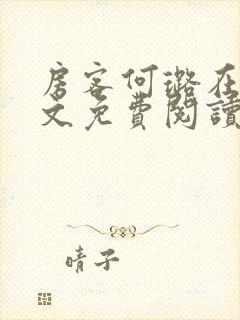 房客何璐在
文免費閱讀
晴子